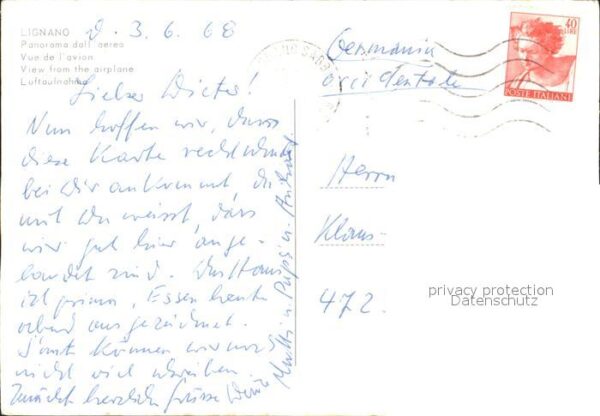 LIGNANO
Panorama dall'aereo
Vue de l'avion
View from the airplane
Luftaufnahme
d. 3.6.68
Lieber Dieter!
Nun hoffen wir, dass
diese Karte recht
bei Dir ankommt, da
mit Du weisst, dass
wir gut hier ange-
landet sind. Das Haus
ist prima, Essen heute
abend ausgezeichnet.
Sonst können wir noch
nicht viel schreiben.
herzlich Grüsse Deine
Mutti u. Papi u.
Germania
occidentale
40
LIRE
POSTE ITALIANE
Herrn
Klaus-
472.
privacy protection
Datenschutz